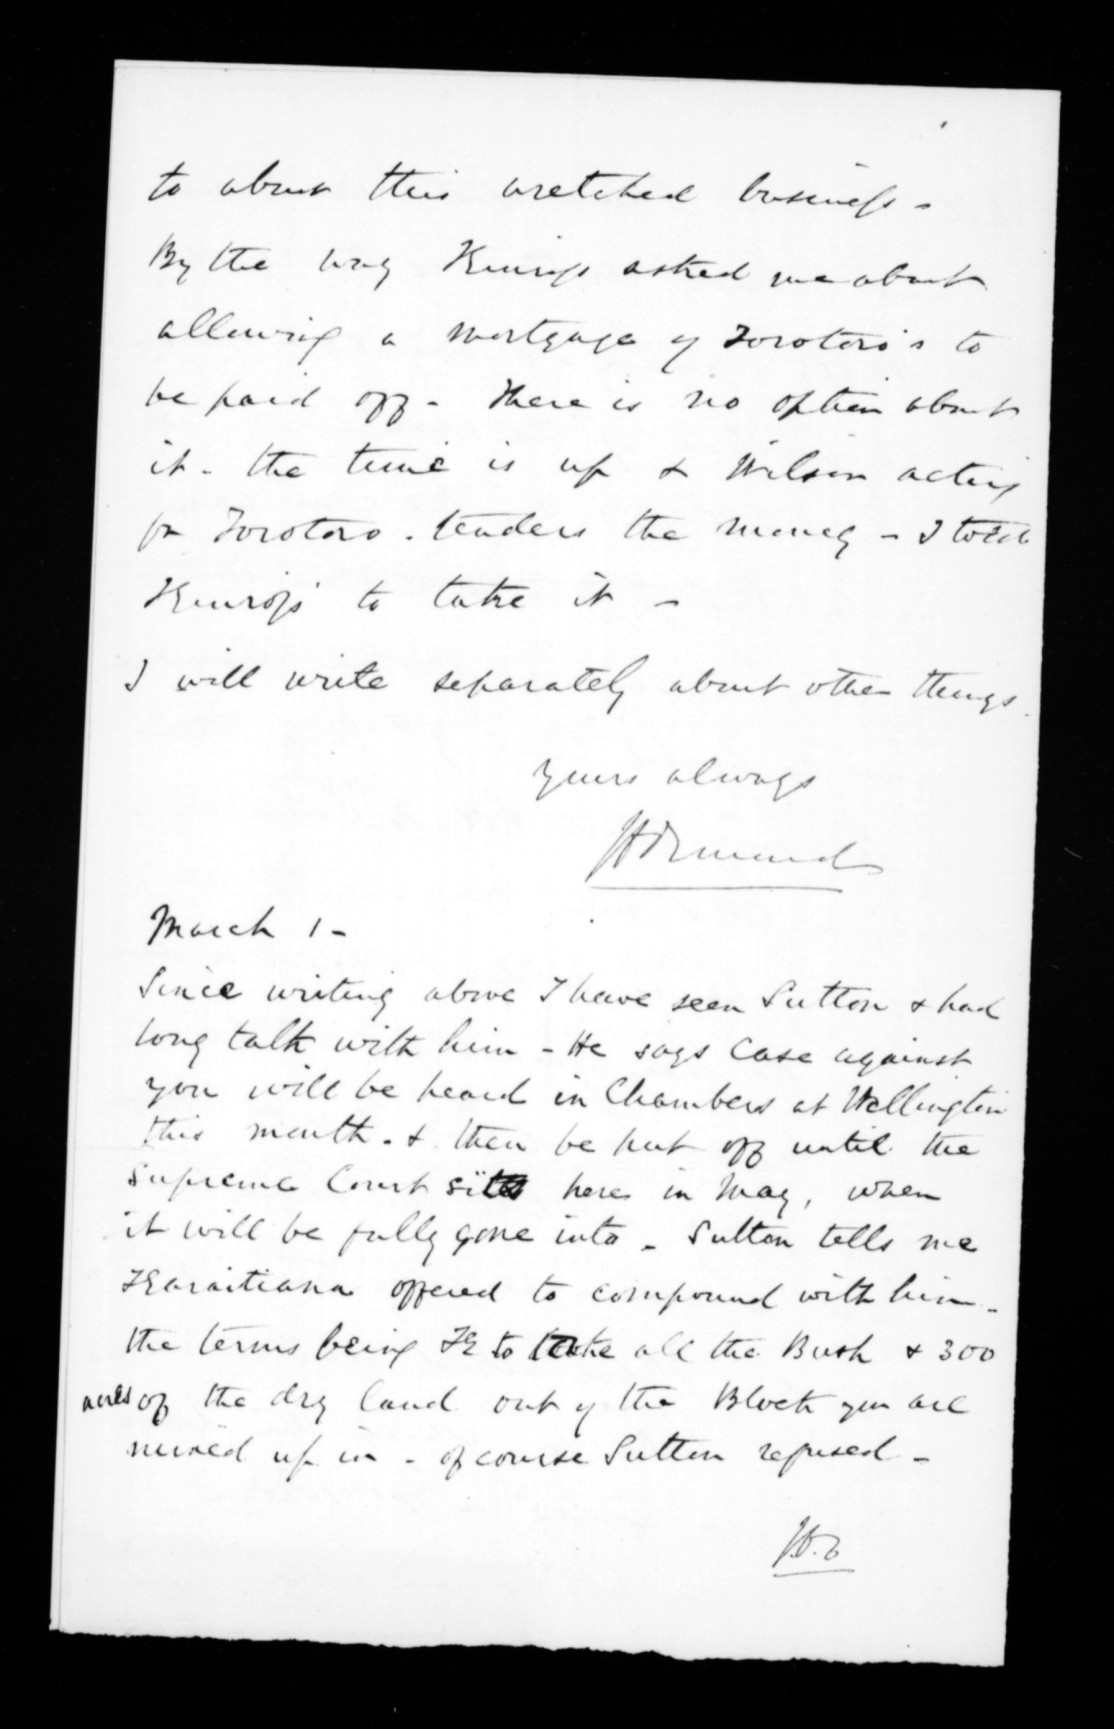 to about this wretched business -
By the way Kinross asked me about
allowing a mortgage of Torotoro's to
be paid off - There is no option about
it - the time is up & Wilson acting
for Torotoro . tenders the money - I told
Kinross to take it -
I will write separately about other things.
Yours always
JD Ormond
March 1 -
Since writing above I have seen Sutton & had
long talk with him - He says case against
you will be heard in Chambers at Wellington
this month - & then be put off until the
Supreme Court sits here in May, when
it will be fully gone into - Sutton tells me
Karaitiana offered to compound with him -
the terms being K to take all the Bush & 300
acres of the dry land out of the Block you are
mixed up in - of course Sutton refused -
JDO